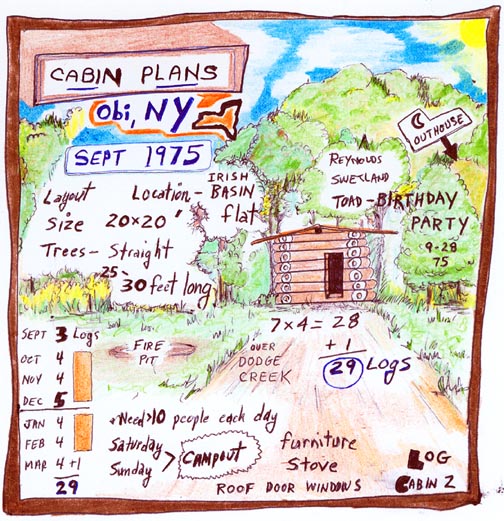 CABIN PLANS
Obi, NY
SEPT 1975
Layout Location - IRISH BASIN
Size 20x20" flat
Trees - Straight
25-30 feet long
REYNOLDS
SWETLAND
TOAD - BIRTHDAY
PARTY
9-28
75
OUTHOUSE
7x4 = 28
+ 1
29 Logs
OVER
DODGE
CREEK
FIRE
PIT
SEPT 3 Logs
OCT 4
NOV 4
DEC 5
JAN 4
FEB 4
MAR 4 +1
29
*Need >10 people each day
Saturday
Sunday > CAMPOUT
furniture
Stove
ROOF DOOR WINDOWS
LOG
CABIN 2